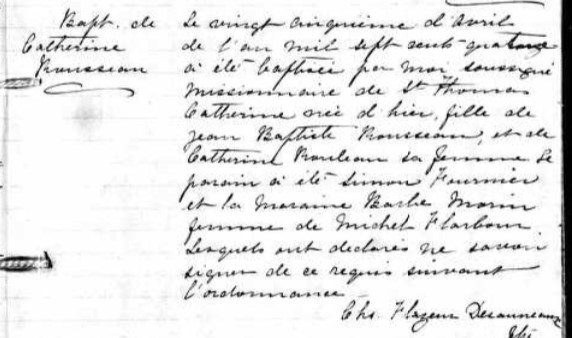 Bapt. de
Catherine
Rousseau
Le vingt cinquième d'avril
de l'an mil sept cents quatorze
a été baptisée par moi soussigné
missionnaire de St Thomas
Catherine née d'hier, fille de
Jean Baptiste Rousseau, et de
Catherine Rouleau sa femme Le
parain a été Simon Fournier
et la maraine Barbe Morin
femme de Michel
Lesquels ont déclarés ne savoir
signer de ce requis suivant
l'ordonnance
Chs.